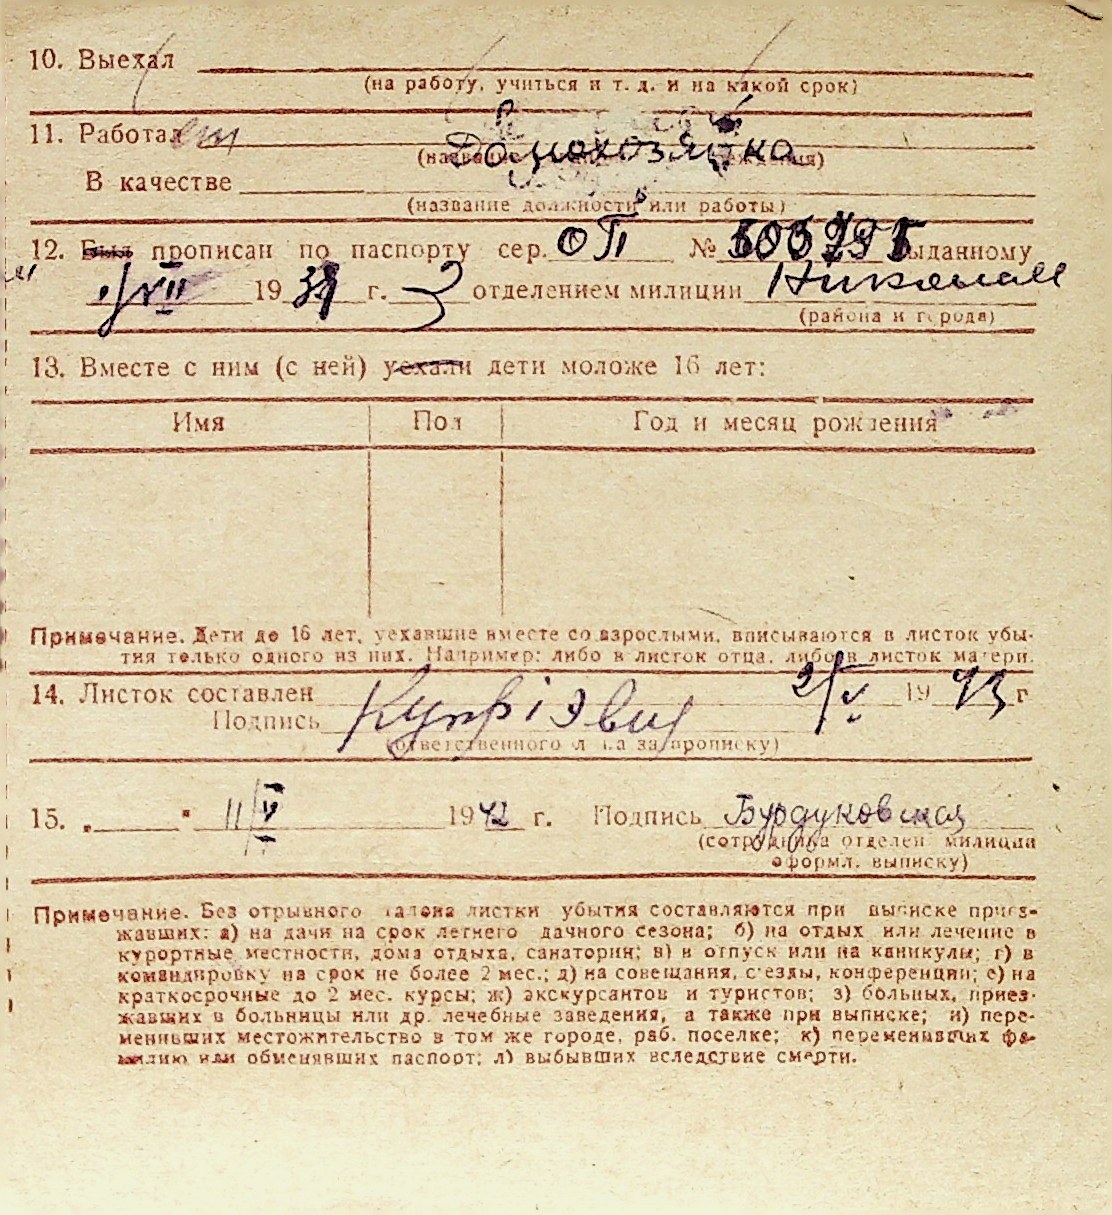 10. Выехал
(на работу, учиться и т. д. и на какой срок)
11. Работает
Домохозяйка
В качестве
(название должности или работы)
12. Был прописан по паспорту сер. ОП № выданному
1/VII 19 39 г. 3 отделением милиции
(района и города)
13. Вместе с ним (с ней) уехали дети моложе 16 лет:
Имя Пол Год и месяц рождения
Примечание. Дети до 16 лет, уехавшие вместе со взрослыми, вписываются в листок убы-
тия только одного из них. Например: либо в листок отца, либо в листок матери.
14. Листок составлен 2/V 19 г
Подпись
(ответственного лица за прописку)
15. „ " 11/V 1942 г. Подпись Бурдуковская
(сотрудника отделен милиции
оформл. выписку)
Примечание. Без отрывного талона листки убытия составляются при выписке приез-
жавших: а) на дачи на срок летнего дачного сезона; б) на отдых или лечение в
курортные местности, дома отдыха, санатории; в) в отпуск или на каникулы; г) в
командировку на срок не более 2 мес.; д) на совещания, с'езды, конференции; е) на
краткосрочные до 2 мес. курсы; ж) экскурсантов и туристов; з) больных, приез-
жавших в больницы или др. лечебные заведения, а также при выписке; и) пере-
менивших местожительство в том же городе, раб. поселке; к) переменивших фа-
милию или обменявших паспорт; л) выбывших вследствие смерти.